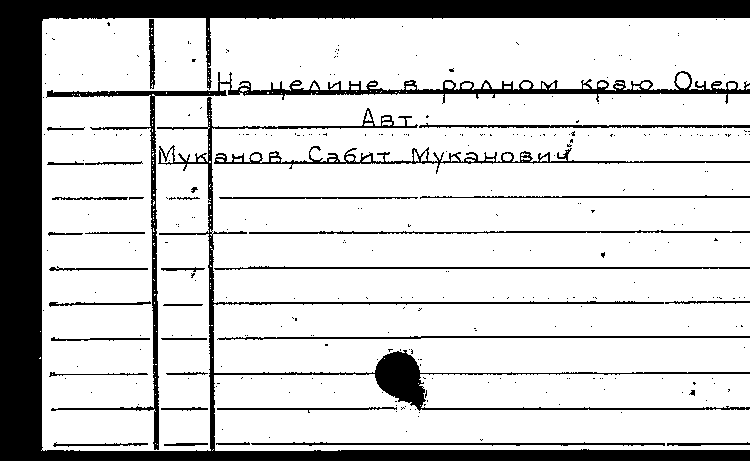 На целине в родном краю Очерк
Авт.:
Муканов, Сабит Муканович